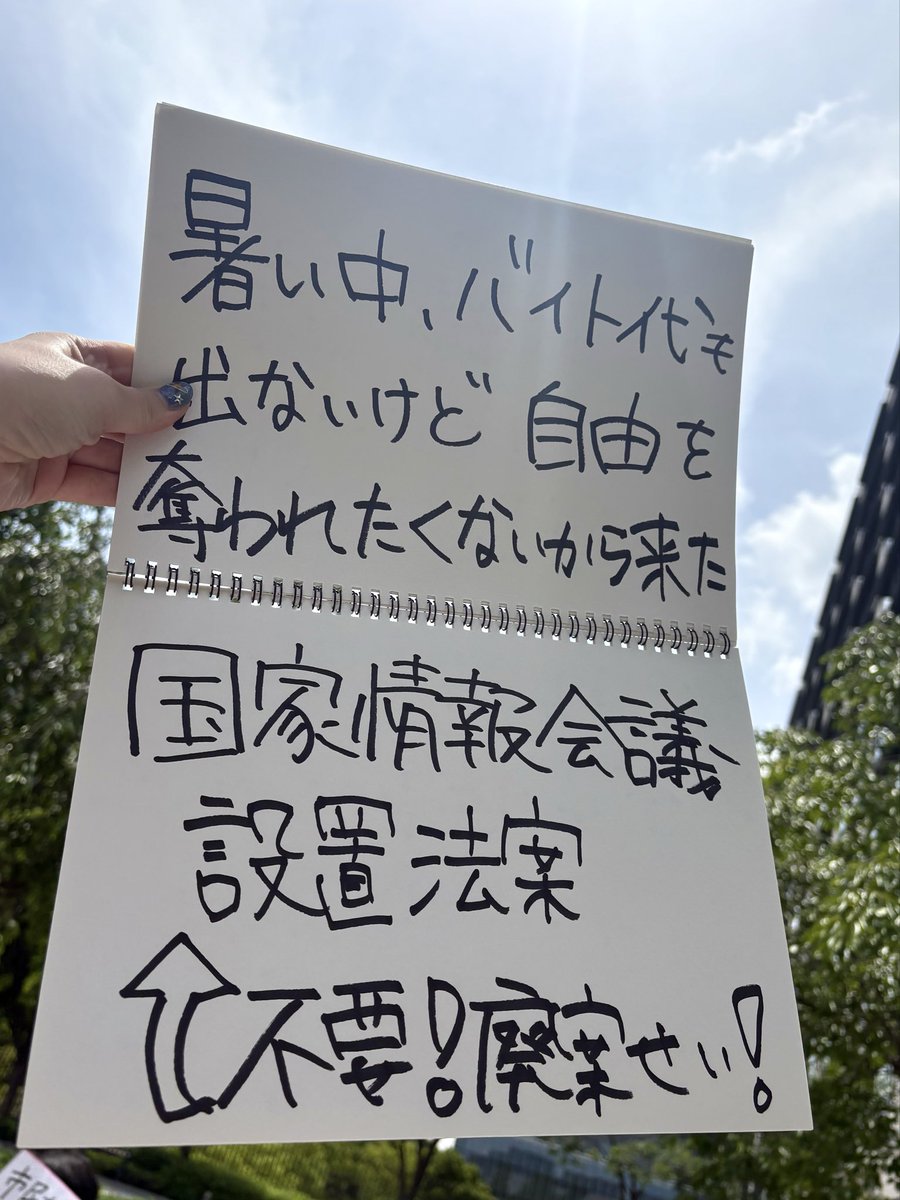 暑い中、バイト代も
出ないけど 自由を
奪われたくないから来た
国家情報会議
設置法案
不要!廃案せい!